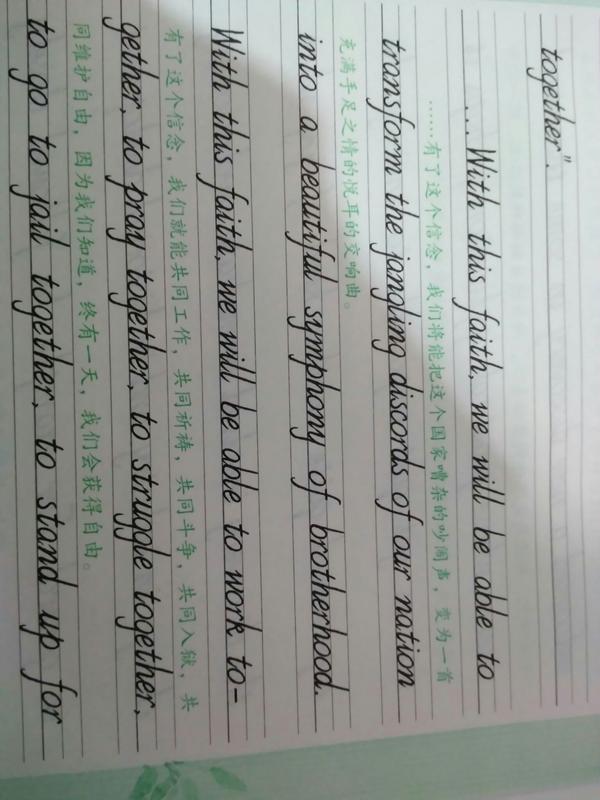 together".
...With this faith, we will be able to
……有了这个信念，我们将能把这个国家嘈杂的吵闹声，变为一首
transform the jangling discords of our nation
充满手足之情的悦耳的交响曲。
into a beautiful symphony of brotherhood.
With this faith, we will be able to work to-
有了这个信念，我们就能共同工作，共同祈祷，共同斗争，共同入狱，共
gether, to pray together, to struggle together,
同维护自由，因为我们知道，终有一天，我们会获得自由。
to go to jail together, to stand up for